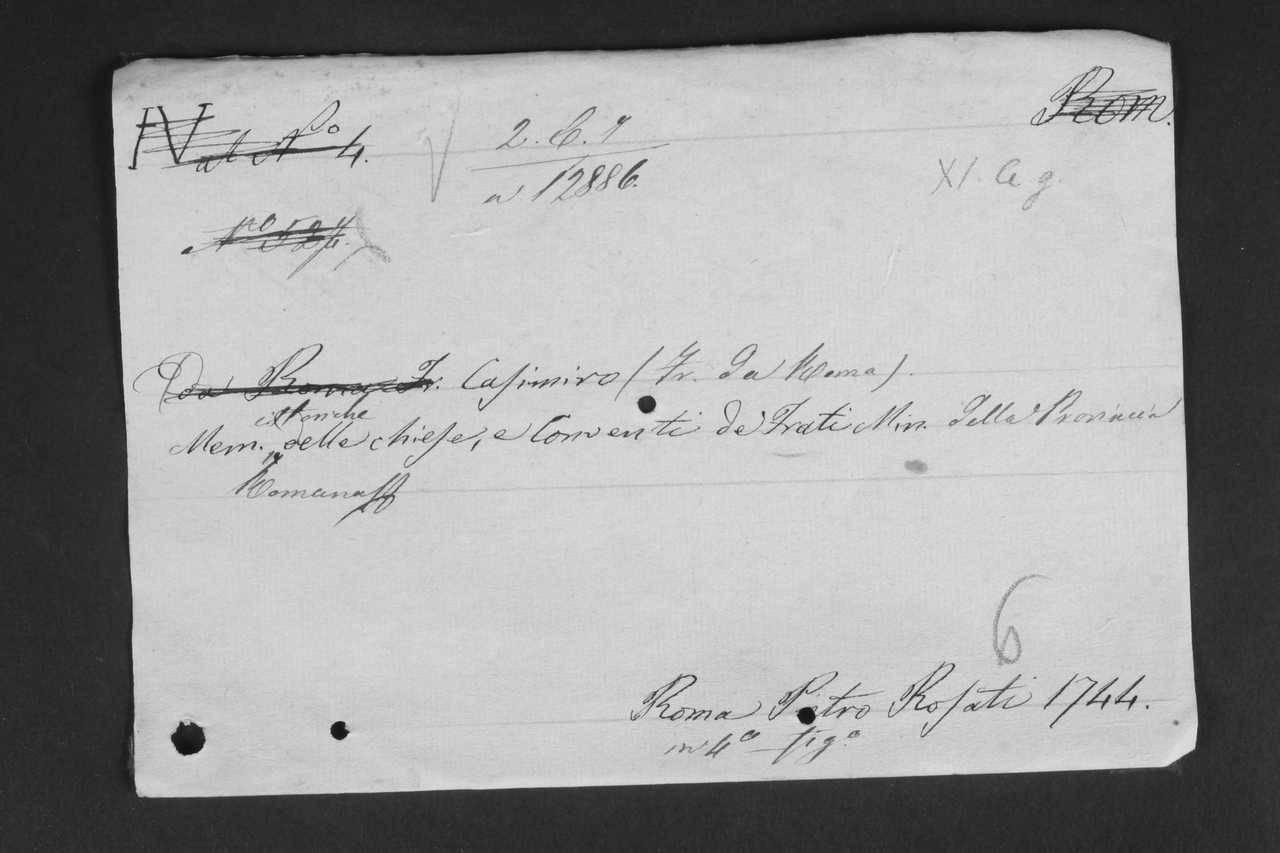 IV at No 4.
2. C. 7
a 12886.
Rom.
XI. a g.
No 524.
Da Roma Fr. Casimiro (Fr. da Roma).
istoriche
Mem. delle chiese, e Conventi de' Frati Min. della Provincia
Romana
6
Roma Pietro Rosati 1744.
in 4o fig.o